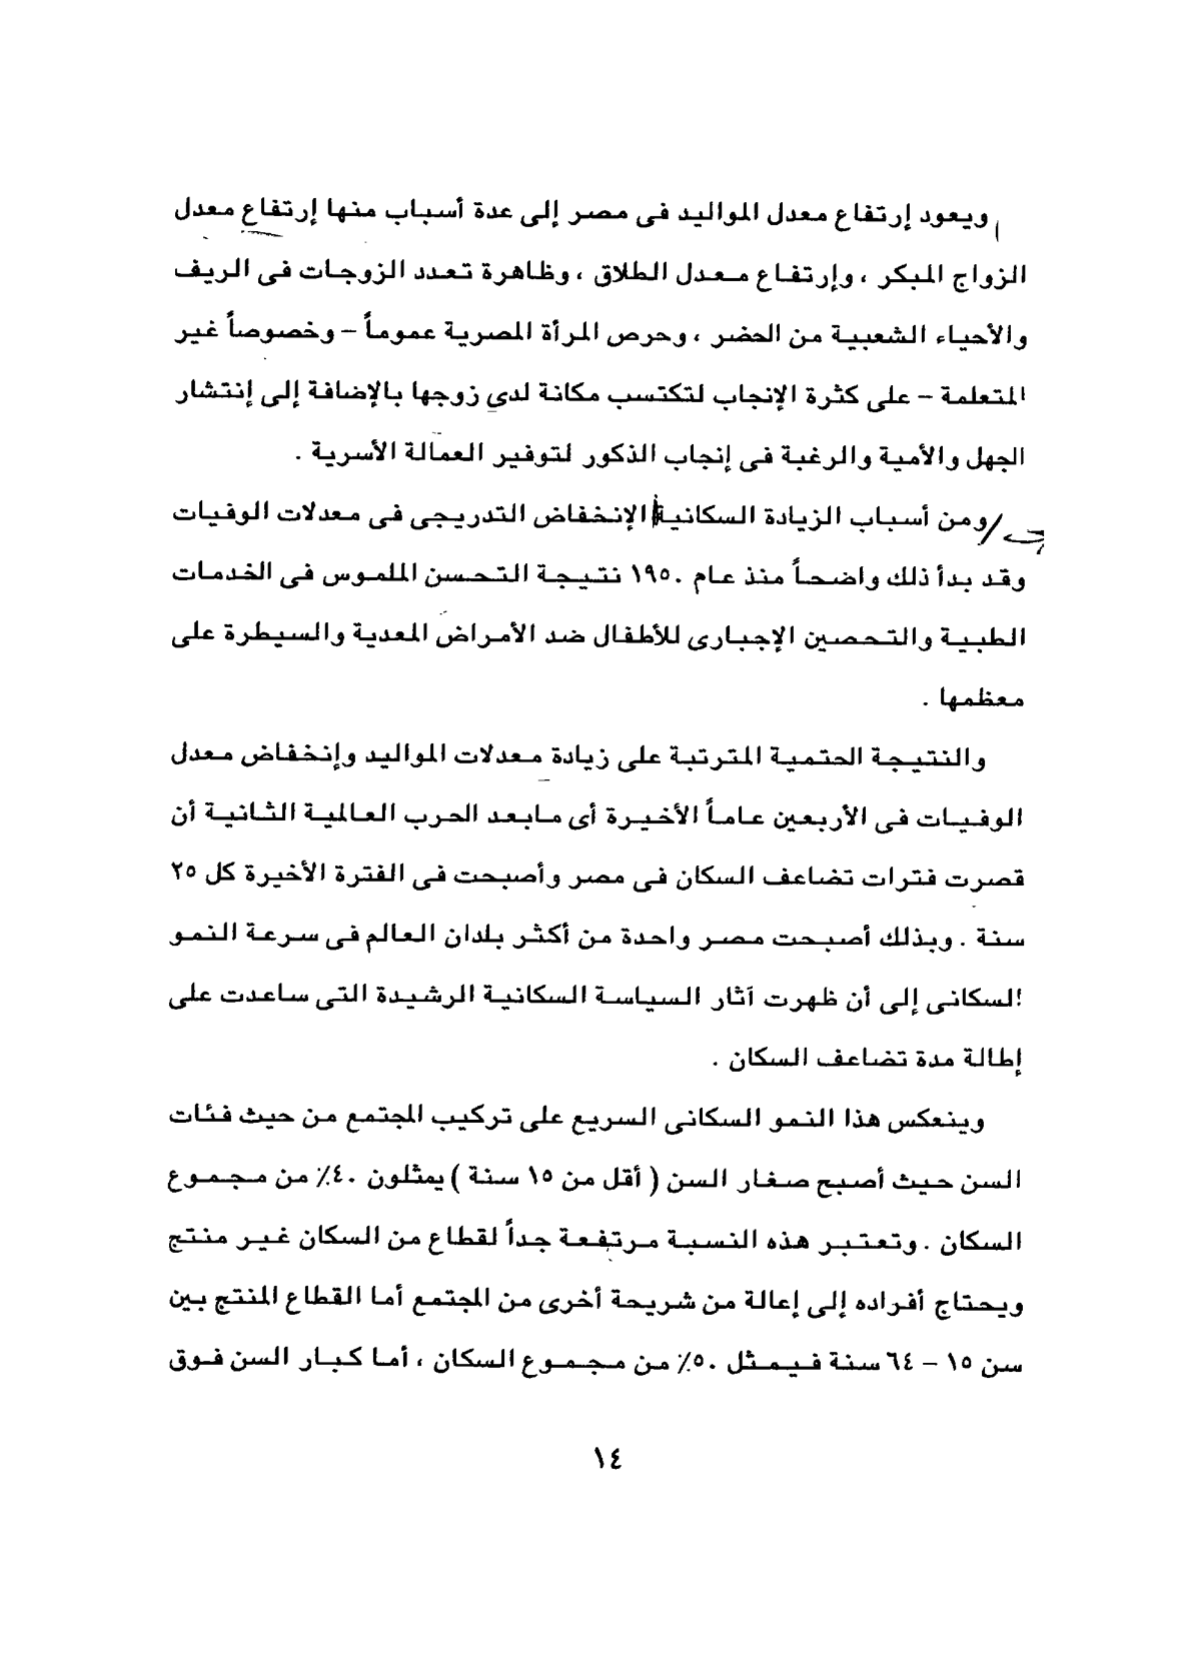 ويعود إرتفاع معدل المواليد فى مصر إلى عدة أسباب منها إرتفاع معدل
الزواج المبكر ، وإرتفاع معدل الطلاق ، وظاهرة تعدد الزوجات فى الريف
والأحياء الشعبية من الحضر ، وحرص المرأة المصرية عموماً – وخصوصاً غير
المتعلمة – على كثرة الإنجاب لتكتسب مكانة لدي زوجها بالإضافة إلى إنتشار
الجهل والأمية والرغبة فى إنجاب الذكور لتوفير العمالة الأسرية .
ومن أسباب الزيادة السكانية الإنخفاض التدريجى فى معدلات الوفيات
وقد بدأ ذلك واضحاً منذ عام ١٩٥٠ نتيجة التحسن الملموس فى الخدمات
الطبية والتحصين الإجبارى للأطفال ضد الأمراض المعدية والسيطرة على
معظمها .
والنتيجة الحتمية المترتبة على زيادة معدلات المواليد وإنخفاض معدل
الوفيات فى الأربعين عاماً الأخيرة أى مابعد الحرب العالمية الثانية أن
قصرت فترات تضاعف السكان فى مصر وأصبحت فى الفترة الأخيرة كل ٢٥
سنة . وبذلك أصبحت مصر واحدة من أكثر بلدان العالم فى سرعة النمو
السكانى إلى أن ظهرت آثار السياسة السكانية الرشيدة التى ساعدت على
إطالة مدة تضاعف السكان .
وينعكس هذا النمو السكانى السريع على تركيب المجتمع من حيث فئات
السن حيث أصبح صغار السن ( أقل من ١٥ سنة ) يمثلون ٤٠٪ من مجموع
السكان . وتعتبر هذه النسبة مرتفعة جداً لقطاع من السكان غير منتج
ويحتاج أفراده إلى إعالة من شريحة أخرى من المجتمع أما القطاع المنتج بين
سن ١٥ – ٦٤ سنة فيمثل ٥٠٪ من مجموع السكان ، أما كبار السن فوق
١٤